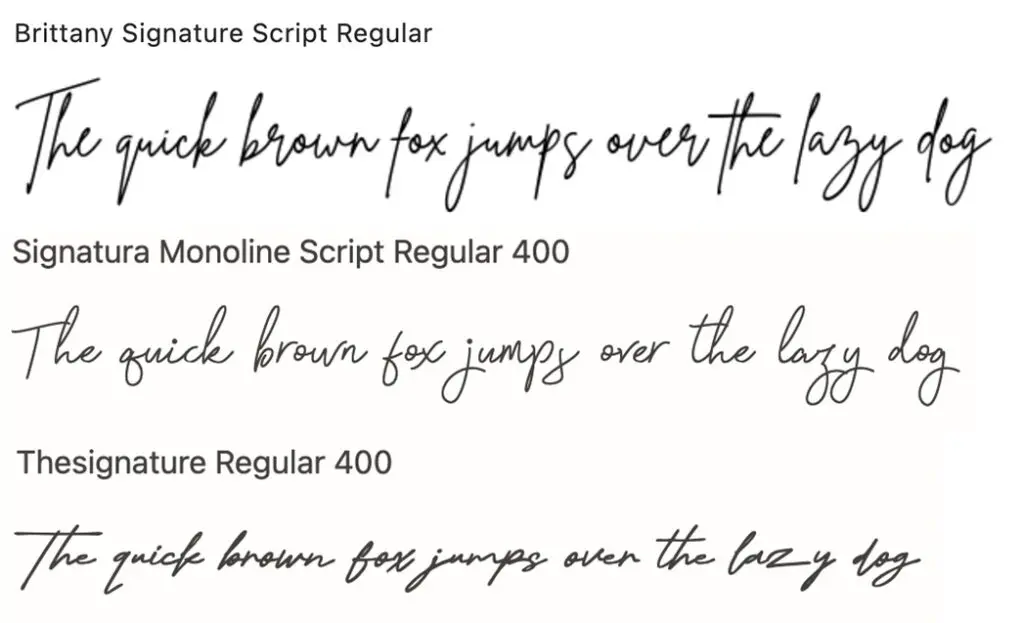 Brittany Signature Script Regular
The quick brown fox jumps over the lazy dog
Signatura Monoline Script Regular 400
The quick brown fox jumps over the lazy dog
Thesignature Regular 400
The quick brown fox jumps over the lazy dog